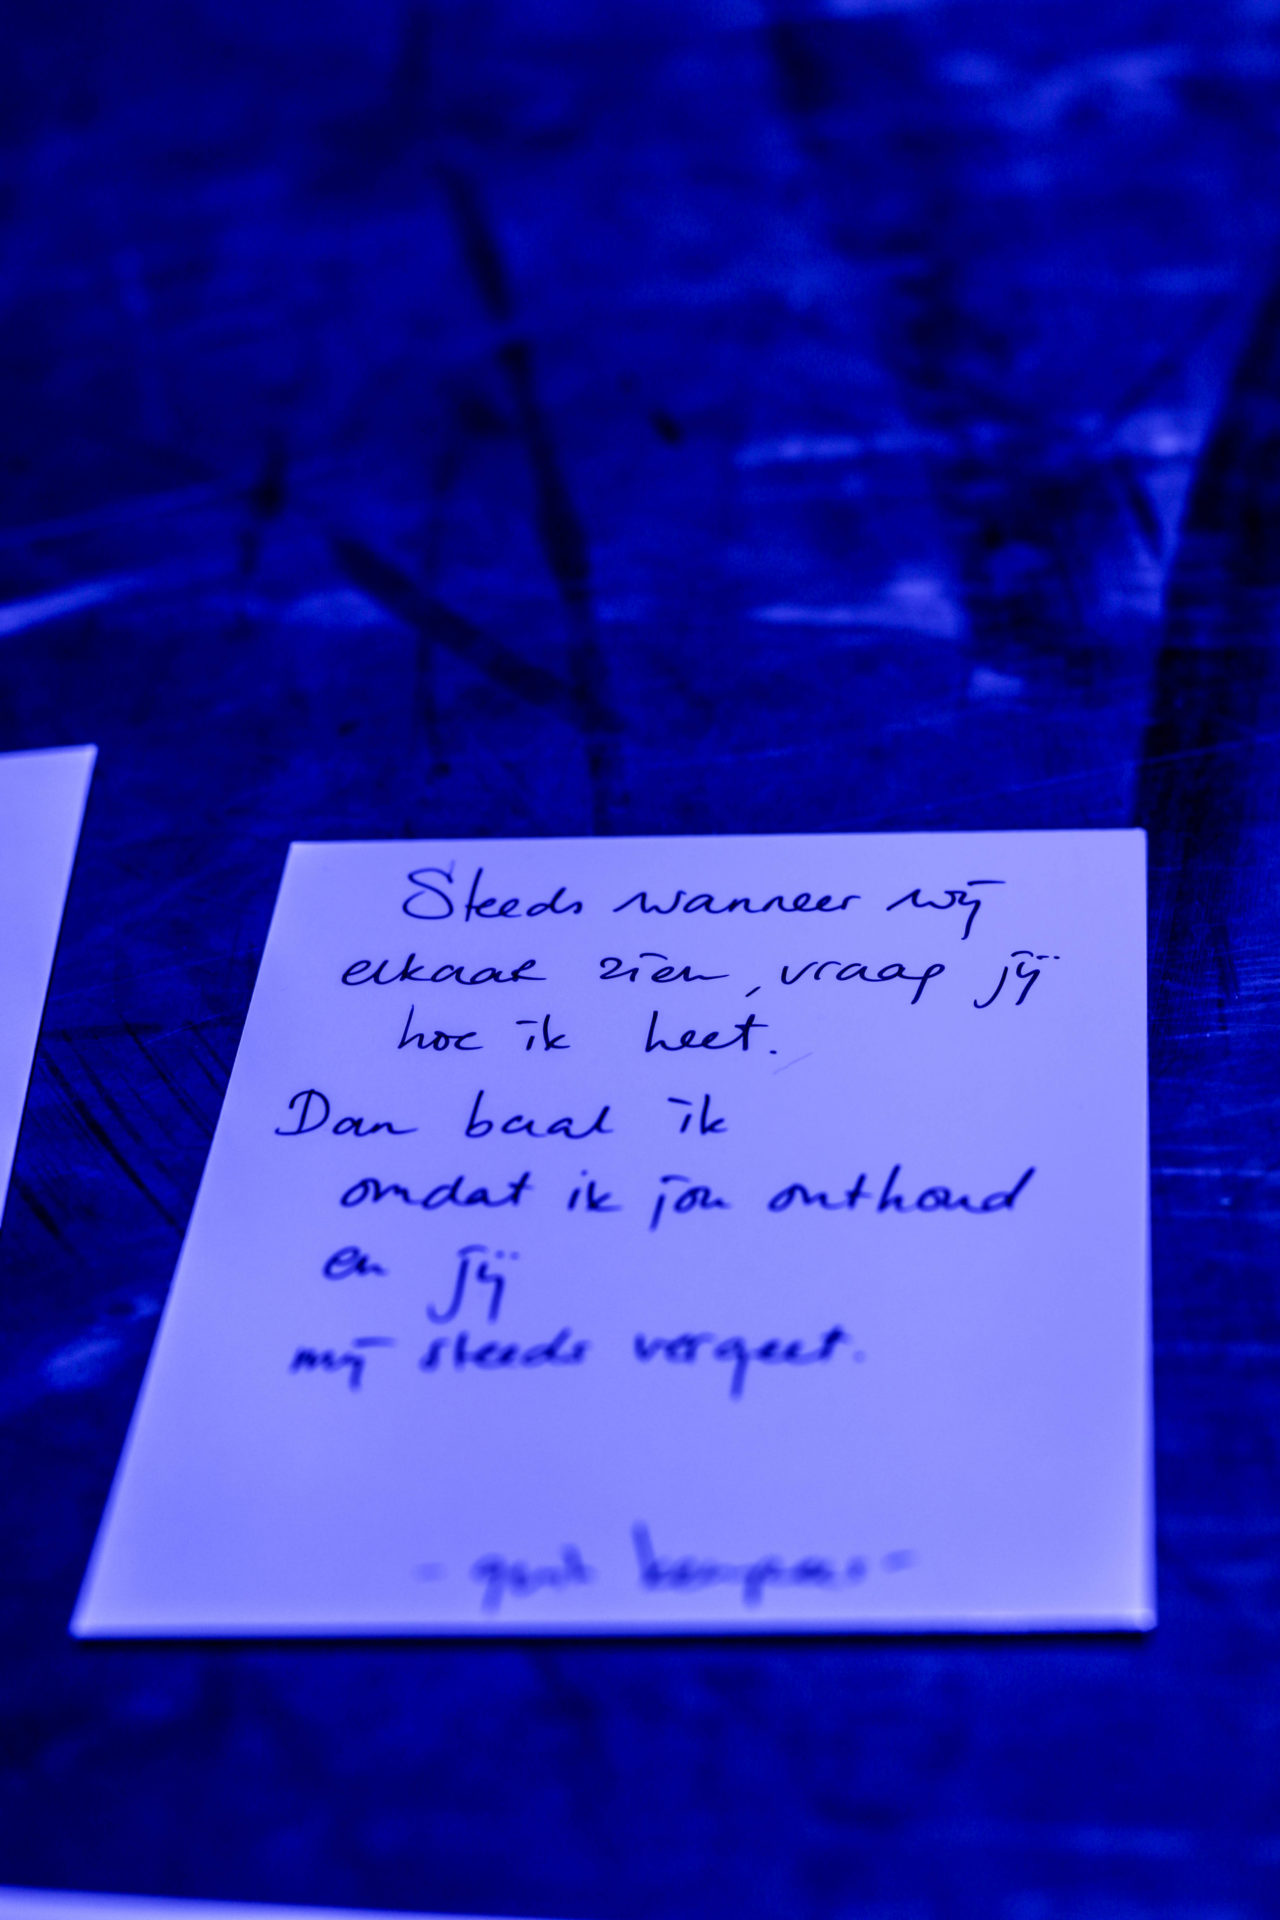 Steeds wanneer wij
elkaar zien, vraag jij
hoe ik heet.
Dan baal ik
omdat ik jou onthoud
en jij
mij steeds vergeet.